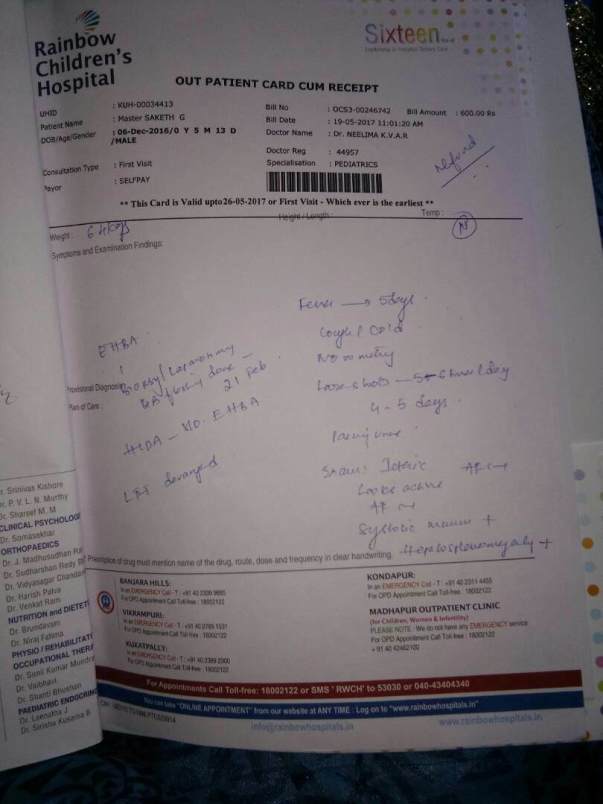 Rainbow
Children's
Hospital
Sixteen
OUT PATIENT CARD CUM RECEIPT
UHID : KUH-00034413
Patient Name : Master SAKETH G
DOB/Age/Gender : 06-Dec-2016/0 Y 5 M 13 D
/MALE
Consultation Type : First Visit
Payor : SELFPAY
Bill No : OCS3-00246742 Bill Amount : 600.00 Rs
Bill Date : 19-05-2017 11:01:20 AM
Doctor Name : Dr. NEELIMA K.V.A.R
Doctor Reg : 44957
Specialisation : PEDIATRICS
refund
** This Card is Valid upto26-05-2017 or First Visit - Which ever is the earliest **
Weight : Height / Length : Temp :
N
Symptoms and Examination Findings:
Fever → 5 days
Cough / Cold
No vomiting
Loose stools - 5-6 times / day
4-5 days
Passing urine
Icteric
Looks active
Systolic murmur +
Hepatosplenomegaly +
EHBA
Biopsy / Laparotomy
done
21 Feb
Provisional Diagnosis
Plan of Care :
H/O EHBA
LFT deranged
Prescription of drug must mention name of the drug, route, dose and frequency in clear handwriting.
r. Srinivas Kishore
r. P. V. L. N. Murthy
Dr. Shareef M. M
CLINICAL PSYCHOLOG
Dr. Somasekhar
ORTHOPAEDICS
Dr. J. Madhusudhan Ra
Dr. Sudharshan Reddy
Dr. Vidyasagar Chandan
Dr. Harish Palva
Dr. Venkat Ram
NUTRITION and DIETET
Dr. Brundavan
Dr. Niraj Fatima
PHYSIO / REHABILITAT
OCCUPATIONAL THERA
Dr. Sunil Kumar Mundra
Dr. Vaibhavi
Dr. Shanti Bhushan
PAEDIATRIC ENDOCRINO
Dr. Leenatha J
Dr. Sirisha Kusuma B
BANJARA HILLS:
In an EMERGENCY Call - T : +91 40
For OPD Appointment Call Toll-free : 18002122
VIKRAMPURI:
In an EMERGENCY Call - T : +91 40
For OPD Appointment Call Toll-free : 18002122
KUKATPALLY:
In an EMERGENCY Call - T : +91 40
For OPD Appointment Call Toll-free : 18002122
KONDAPUR:
In an EMERGENCY Call - T : +91 40 2311 4455
For OPD Appointment Call Toll-free : 18002122
MADHAPUR OUTPATIENT CLINIC
(for Children, Women & Infertility)
PLEASE NOTE : We do not have any EMERGENCY service
For OPD Appointment Call Toll-free : 18002122
For Appointments Call Toll-free: 18002122 or SMS ' RWCH' to 53030 or 040-43404340
You can take "ONLINE APPOINTMENT" from our website at ANY TIME : Log on to "www.rainbowhospitals.in"
info@rainbowhospitals.in www.rainbowhospitals.in